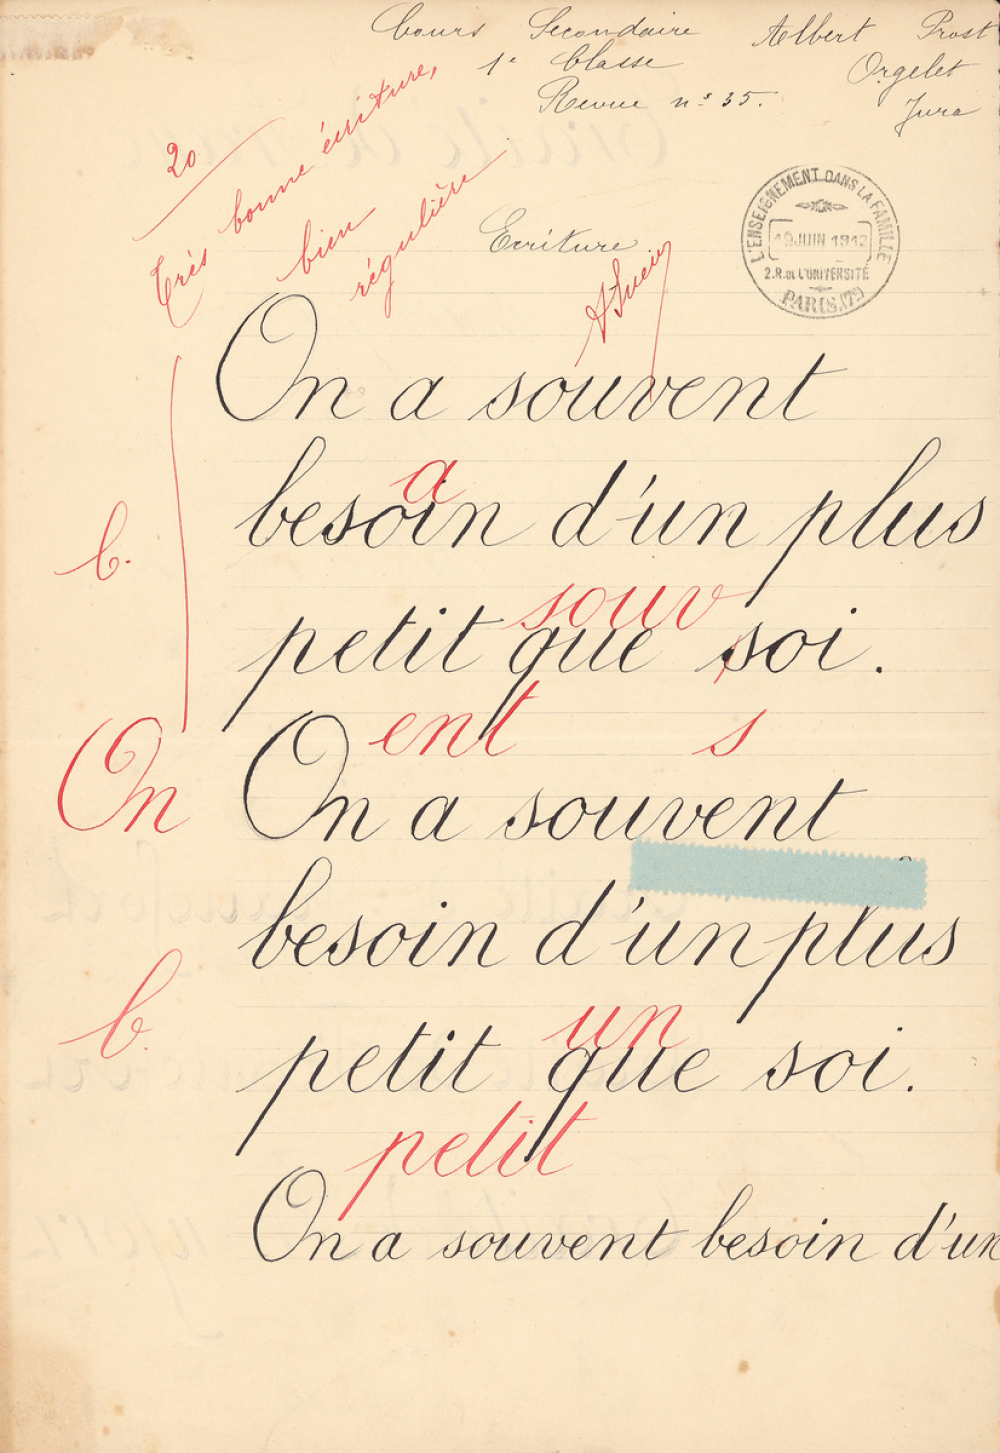 Cours Secondaire Albert Prost
1e Classe Orgelet
Revue no 35. Jura
20
Très bonne écriture,
bien
régulière
Ecriture
L'ENSEIGNEMENT DANS LA FAMILLE
19 JUIN 1912
2.R. DE L'UNIVERSITÉ
PARIS.179
On a souvent
a
besoin d'un plus
b.
souv
petit que soi.
ent s
On On a souvent
besoin d'un plus
b
un
petit que soi.
petit
On a souvent besoin d'un